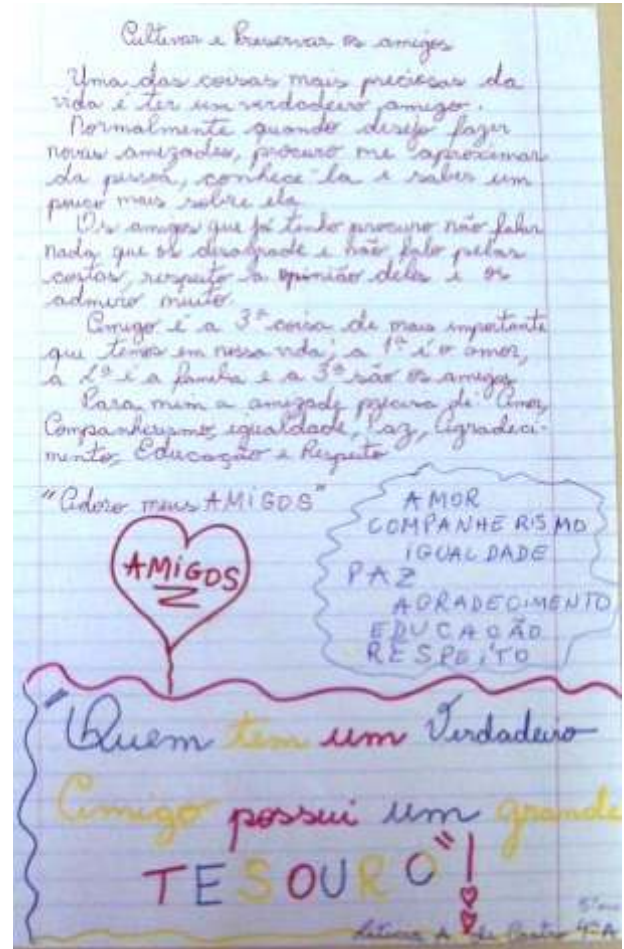 Cultivar e Preservar os amigos
Uma das coisas mais preciosas da
vida é ter um verdadeiro amigo.
Normalmente quando desejo fazer
novas amizades, procuro me aproximar
da pessoa, conhece-la e saber um
pouco mais sobre ela
Os amigos que já tenho procuro não falar
nada que os desagrade e não falo pelas
costas, respeito a opinião deles e os
admiro muito.
Amigo é a 3ª coisa de mais importante
que temos em nossa vida; a 1ª é o amor,
a 2ª é a família e a 3ª são os amigos
Para mim a amizade precisa de: Amor,
Companheirismo, igualdade, Paz, Agradeci-
mento, Educação e Respeito
"Adoro meus AMiGOS"
AMiGOS
AMOR
COMPANHERISMO
IGUALDADE
PAZ
AGRADECIMENTO
EDUCAÇÃO
RESPEiTO
"Quem tem um Verdadeiro
Amigo possui um grande
TESOURO"!
5º ano
Leticia A. de Castro 4ª A